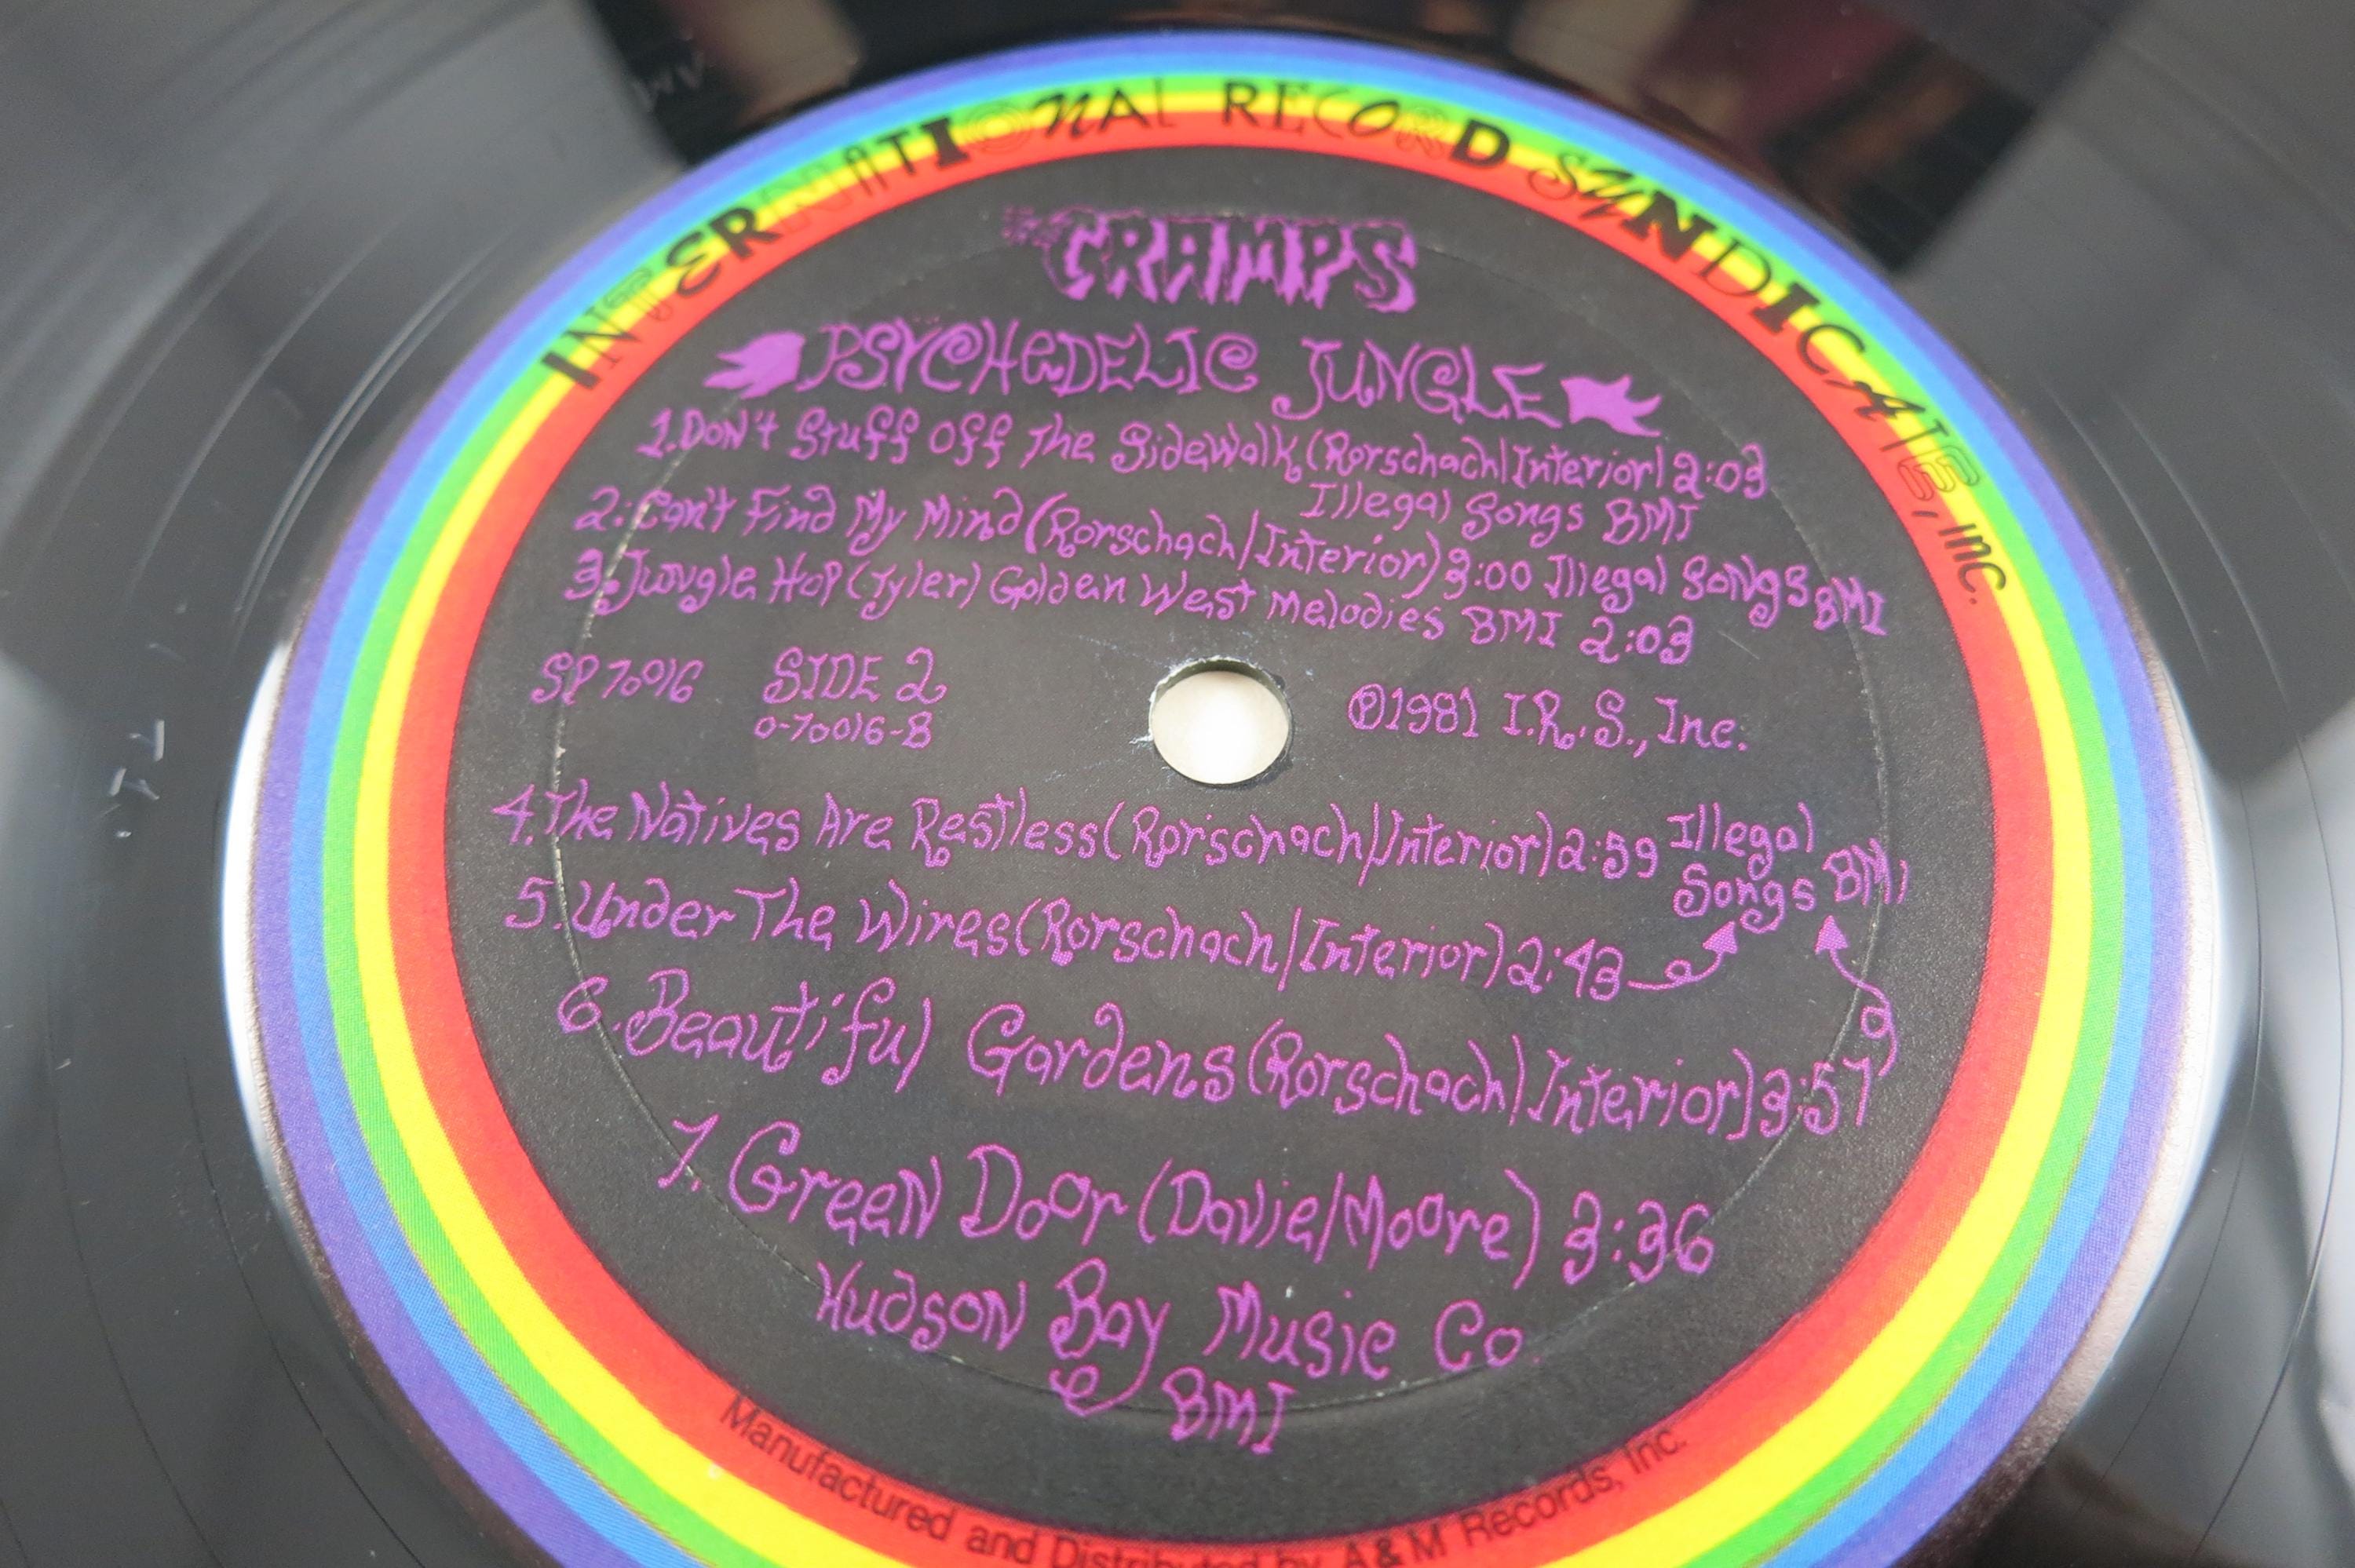 INTERNATIONAL RECORD SYNDICATE, INC.
THE CRAMPS
PSYCHEDELIC JUNGLE
1. Don't Stuff Off The Sidewalk (Rorschach/Interior) 2:03
Illegal Songs BMI
2. Can't Find My Mind (Rorschach/Interior) 3:00 Illegal Songs BMI
3. Jungle Hop (Tyler) Golden West Melodies BMI 2:03
SP 70016 SIDE 2 ℗1981 I.R.S., Inc.
0-70016-B
4. The Natives Are Restless (Rorschach/Interior) 2:59 Illegal Songs BMI
5. Under The Wires (Rorschach/Interior) 2:43
6. Beautiful Gardens (Rorschach/Interior) 3:57
7. Green Door (Davie/Moore) 3:36
Hudson Bay Music Co.
BMI
Manufactured and Distributed by A&M Records, Inc.